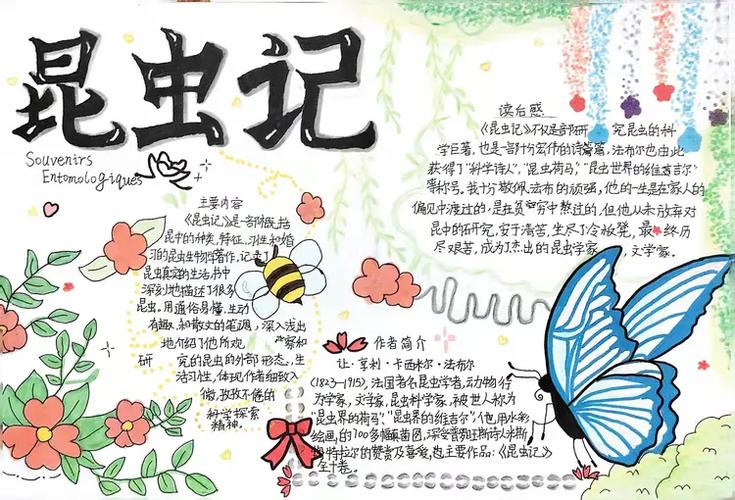 昆虫记
Souvenirs
Entomologiques
主要内容
《昆虫记》是一部概括
昆虫的种类、特征、习性和婚
习的昆虫生物学著作,记录了
昆虫真实的生活书中
深刻地描述了很多
昆虫。用通俗易懂、生动
有趣、和散文的笔调,深入浅出
地介绍了他所观察和
研究的昆虫的外部形态、生
活习性,体现作者细致入
微、孜孜不倦的
科学探索
精神。
读后感
《昆虫记》不仅是部研究昆虫的科
学巨著,也是一部十分宏伟的诗篇,法布尔也由此
获得了"科学诗人"、"昆虫荷马"、"昆虫世界的维吉尔"
等称号。我十分敬佩法布的顽强,他的一生是在家人的
偏见中渡过的,是在贫穷中熬过的,但他从未放弃对
昆中的研究,安于清苦,坐尽了冷板凳,最终历
尽艰苦,成为了杰出的昆虫学家,文学家。
作者简介
让·亨利·卡西米尔·法布尔
(1823-1915),法国著名昆虫学者,动物行
为学家,文学家,昆虫科学家,被世人称为
"昆虫界的荷马""昆虫界的维吉尔",他用水彩
绘画的700多幅菌图,深受普罗旺斯诗人米斯
特拉尔的赞赏及喜爱,他主要作品:《昆虫记》
全十卷。